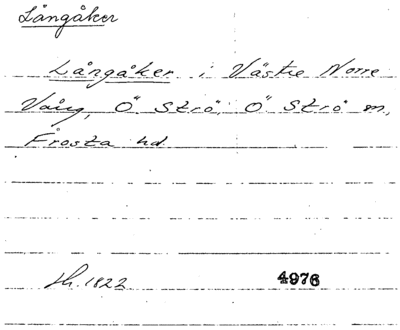 Långåker
Långåker i Västre Norre
Vång, Ö Strö, Ö Strö sn,
Frosta hd
1822 4976